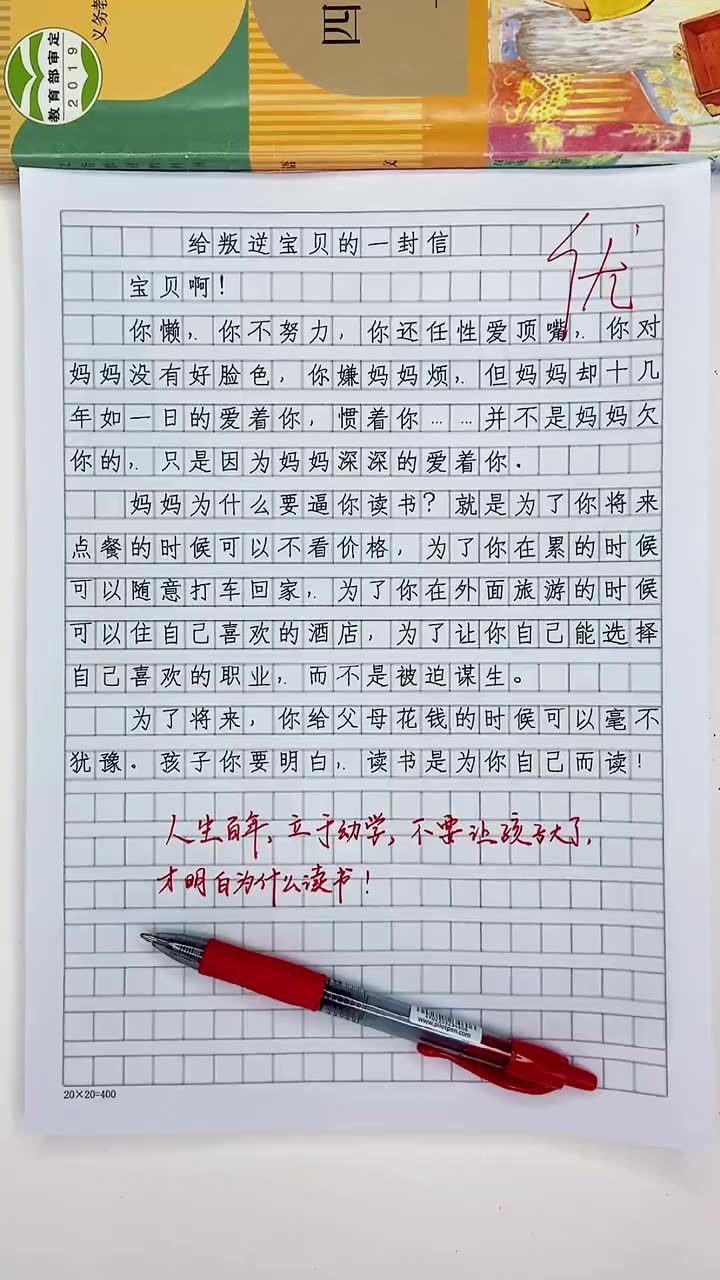 义务教
四
教育部审定
2019
语
文
给叛逆宝贝的一封信
优
宝贝啊！
你懒，你不努力，你还任性爱顶嘴，你对
妈妈没有好脸色，你嫌妈妈烦，但妈妈却十几
年如一日的爱着你，惯着你……并不是妈妈欠
你的，只是因为妈妈深深的爱着你。
妈妈为什么要逼你读书？就是为了你将来
点餐的时候可以不看价格，为了你在累的时候
可以随意打车回家，为了你在外面旅游的时候
可以住自己喜欢的酒店，为了让你自己能选择
自己喜欢的职业，而不是被迫谋生。
为了将来，你给父母花钱的时候可以毫不
犹豫。孩子你要明白，读书是为你自己而读！
人生百年，立于幼学，不要让孩子大了，
才明白为什么读书！
www.pilotpen.com
20×20=400